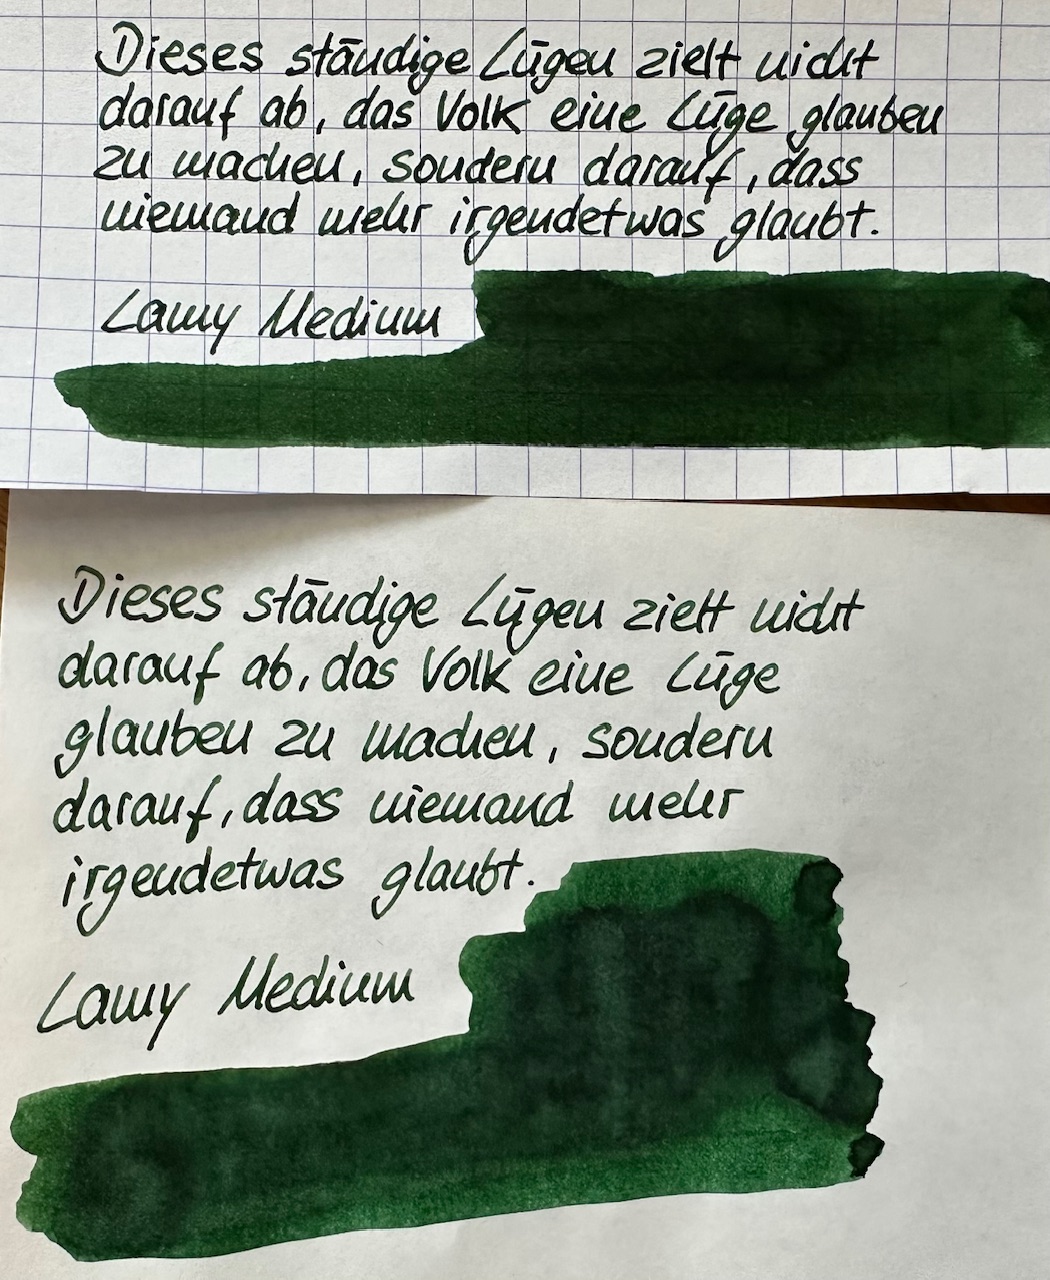 Dieses ständige Lügen zielt nicht
darauf ab, das Volk eine Lüge glauben
zu machen, sondern darauf, dass
niemand mehr irgendetwas glaubt.
Lamy Medium
Dieses ständige Lügen zielt nicht
darauf ab, das Volk eine Lüge
glauben zu machen, sondern
darauf, dass niemand mehr
irgendetwas glaubt.
Lamy Medium